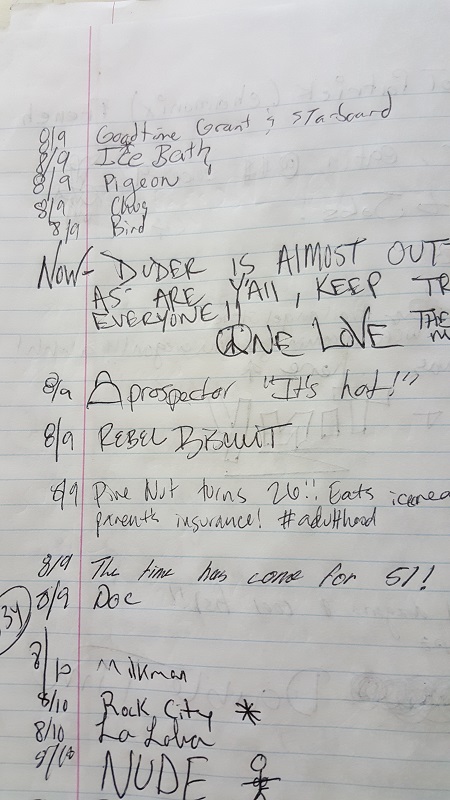 8/9 Goodtime Grant & Starboard
8/9 Ice Bath
8/9 Pigeon
8/9 Chug
8/9 Bird
Now- DUDER IS ALMOST OUT
AS ARE Y'All, KEEP TR
EVERYONE!!
ONE LOVE THE
8/9 prospector "It's hot!"
8/9 REBEL BISCUIT
8/9 Pine Nut turns 26!! Eats icecrea
parents insurance! #adulthood
8/9 The time has come for 51!
8/9 Doc
34
8/10 Milkman
8/10 Rock City *
8/10 La Loba
8/10 NUDE